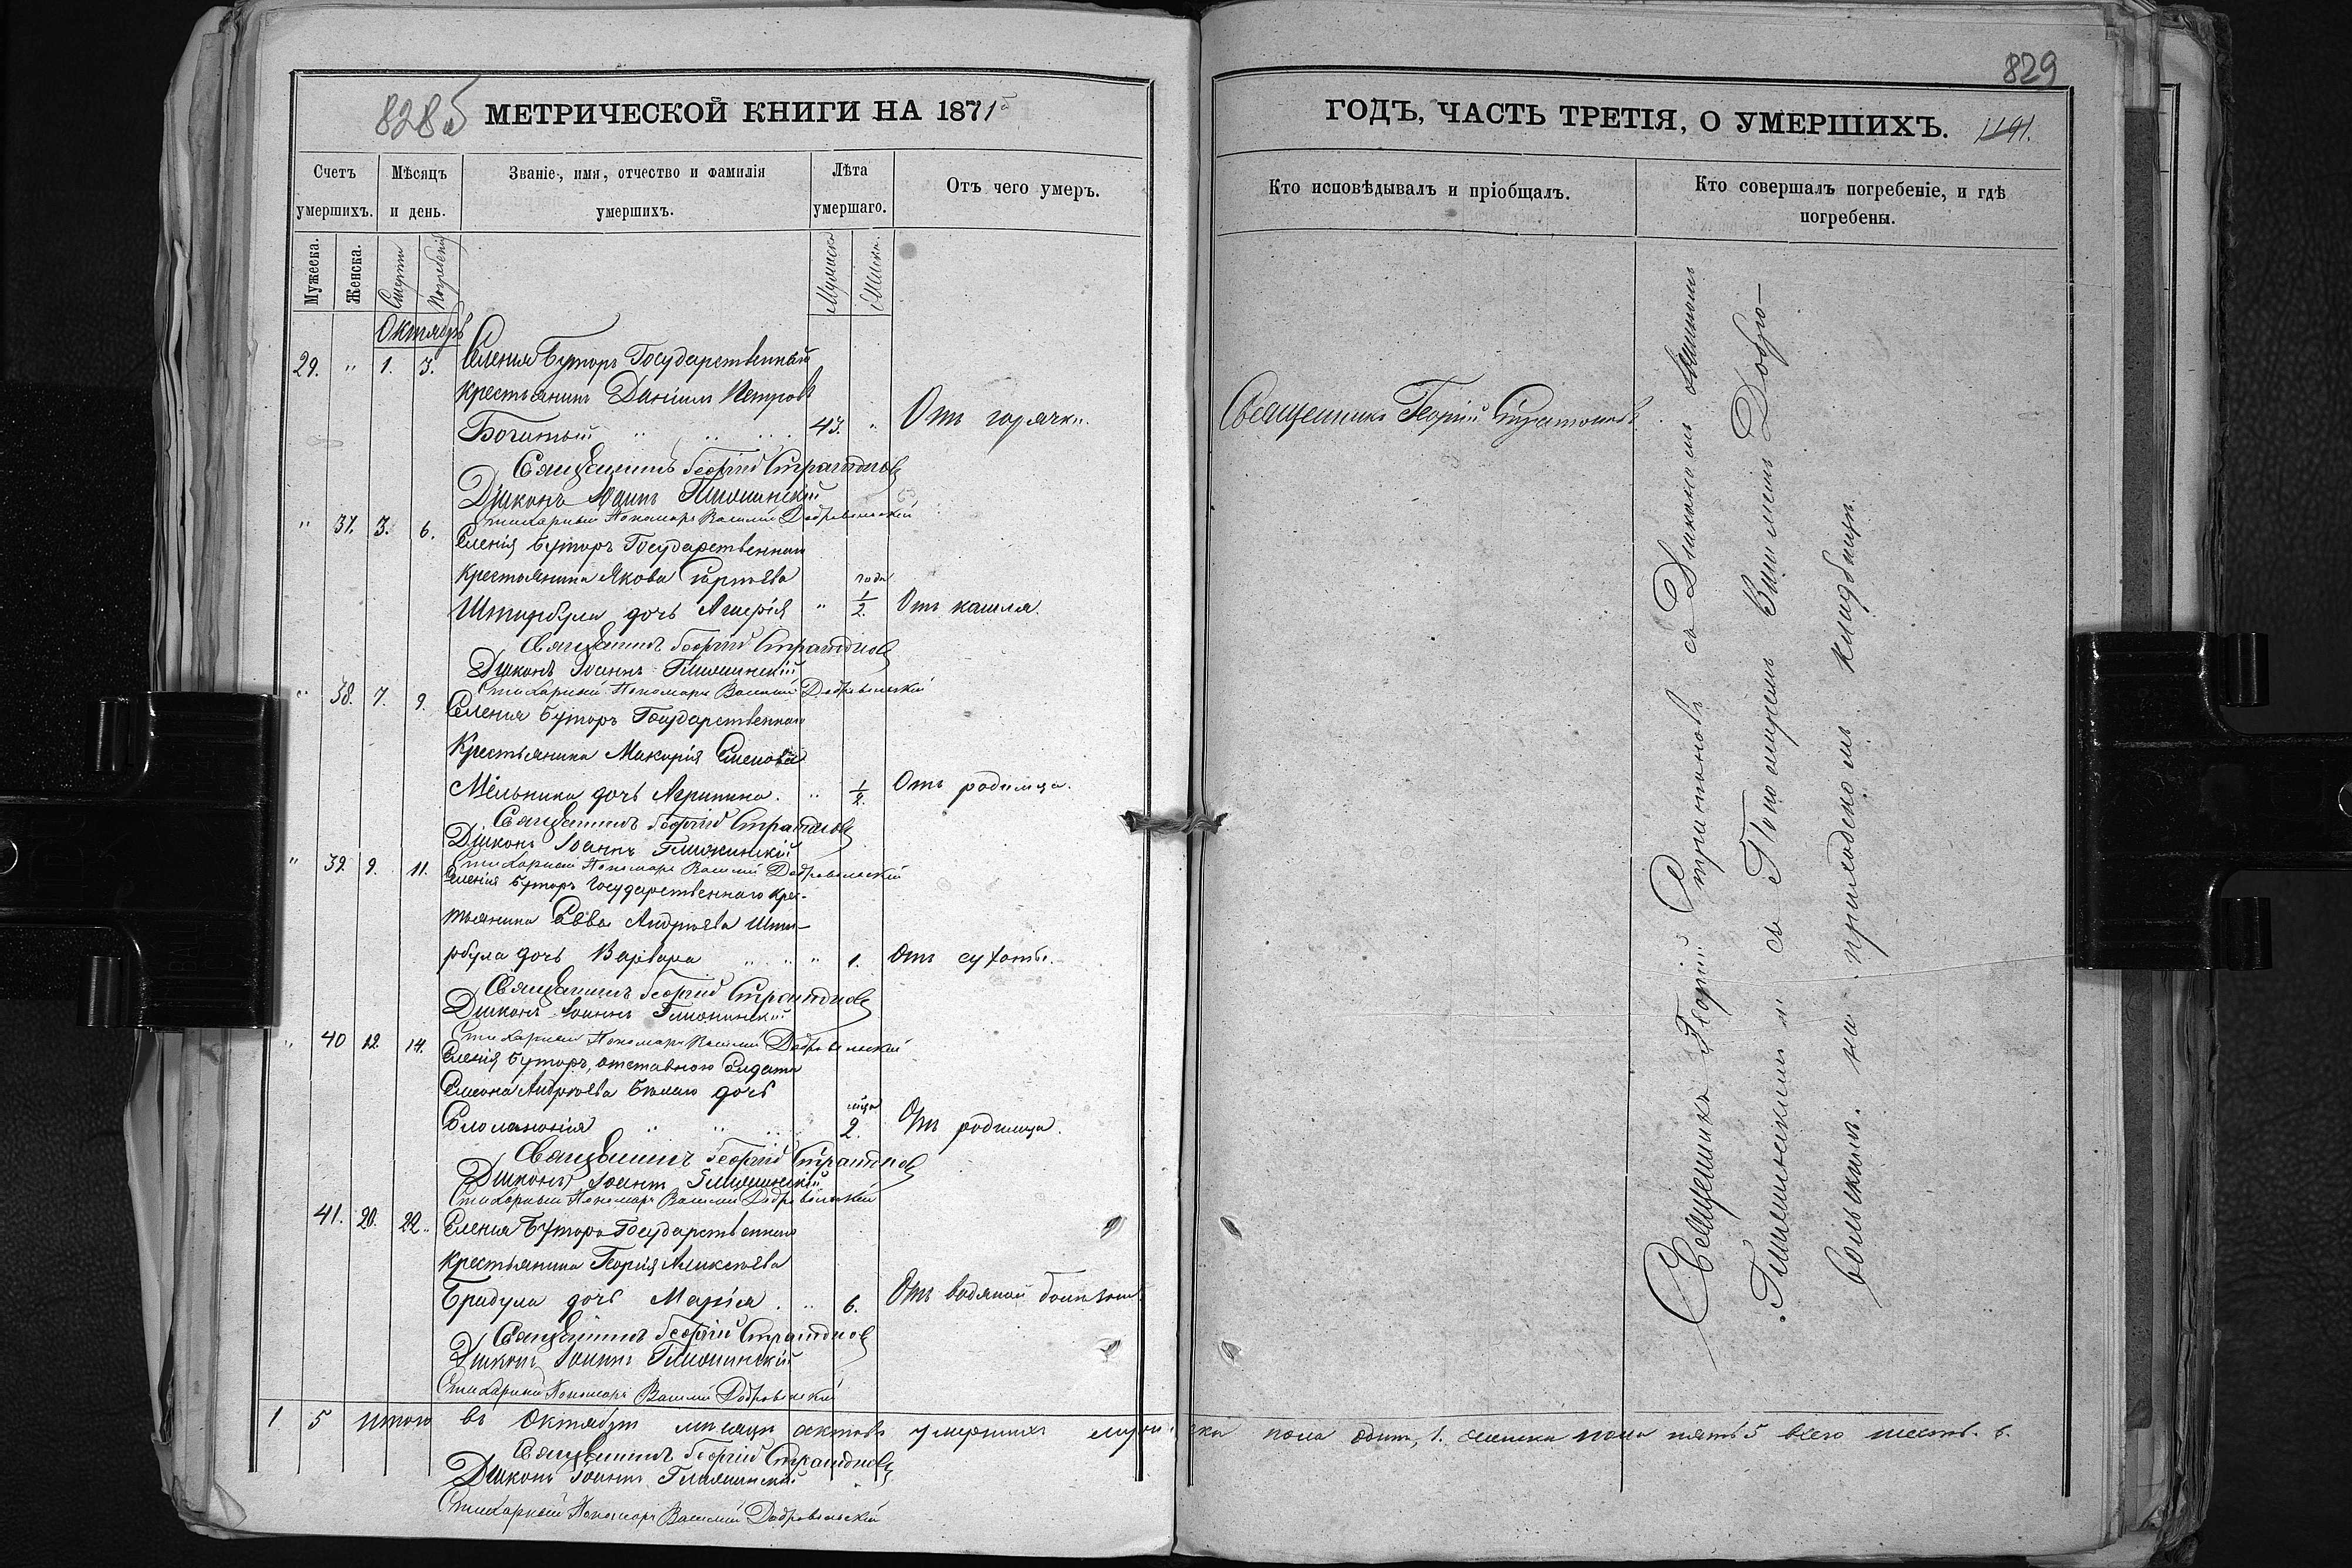 828б
МЕТРИЧЕСКОЙ КНИГИ НА 1871
Счетъ умершихъ.
Мѣсяцъ и день.
Званіе, имя, отчество и фамилія умершихъ.
Лѣта умершаго.
Отъ чего умеръ.
Мужеска. Женска. Смерти Погребенія Мужеска Женска
Октябрь
29. " 1. 3. Селенія Буторъ Государственный
крестьянинъ Даніилъ Петровъ
Богатый " " " 43. " Отъ горячки.
Священникъ Георгій Стратоновъ
Діаконъ Іоаннъ
Стихарный Пономарь Василій Добровольскій
" 37. 3. 6. Селенія Буторъ Государственнаго
крестьянина Якова
Штирбула дочь " года 1/2. Отъ кашля.
Священникъ Георгій Стратоновъ
Діаконъ Іоаннъ
Стихарный Пономарь Василій Добровольскій
" 38. 7. 9. Селенія Буторъ Государственнаго
Крестьянина Макарія Семенова
Мельника дочь Агрипина. " 1/2. Отъ родимца.
Священникъ Георгій Стратоновъ
Діаконъ Іоаннъ
Стихарный Пономарь Василій Добровольскій
" 39. 9. 11. Селенія Буторъ Государственнаго крес-
тьянина Саввы Андреева Шти-
рбула дочь Варвара " " " 1. Отъ сухоты.
Священникъ Георгій Стратоновъ
Діаконъ Іоаннъ
Стихарный Пономарь Василій Добровольскій
" 40 12. 14. Селенія Буторъ, отставного Солдата
Семена Андреева дочь
" " " мѣся 2. Отъ родимца.
Священникъ Георгій Стратоновъ
Діаконъ Іоаннъ
Стихарный Пономарь Василій Добровольскій
41. 20. 22. Селенія Буторъ Государственнаго
крестьянина Георгія Алексѣева
Брадула дочь Марія. " 6. Отъ водяной болѣзни.
Священникъ Георгій Стратоновъ
Діаконъ Іоаннъ
Стихарный Пономарь Василій Добровольскій
1 5 Итого въ Октябрѣ мѣсяцѣ актовъ умершихъ мужеска пола одинъ, 1. женска пола пять 5 всего шесть. 6.
Священникъ Георгій Стратоновъ
Діаконъ Іоаннъ
Стихарный Пономарь Василій Добровольскій
829
ГОДЪ, ЧАСТЬ ТРЕТІЯ, О УМЕРШИХЪ. 1191.
Кто исповѣдывалъ и пріобщалъ.
Кто совершалъ погребеніе, и гдѣ погребены.
Священникъ Георгій Стратоновъ.
Священникъ Георгій Стратоновъ съ Діакономъ Іоанномъ
и съ Пономаремъ Василіемъ Добро-
вольскимъ. на приходскомъ кладбищѣ.